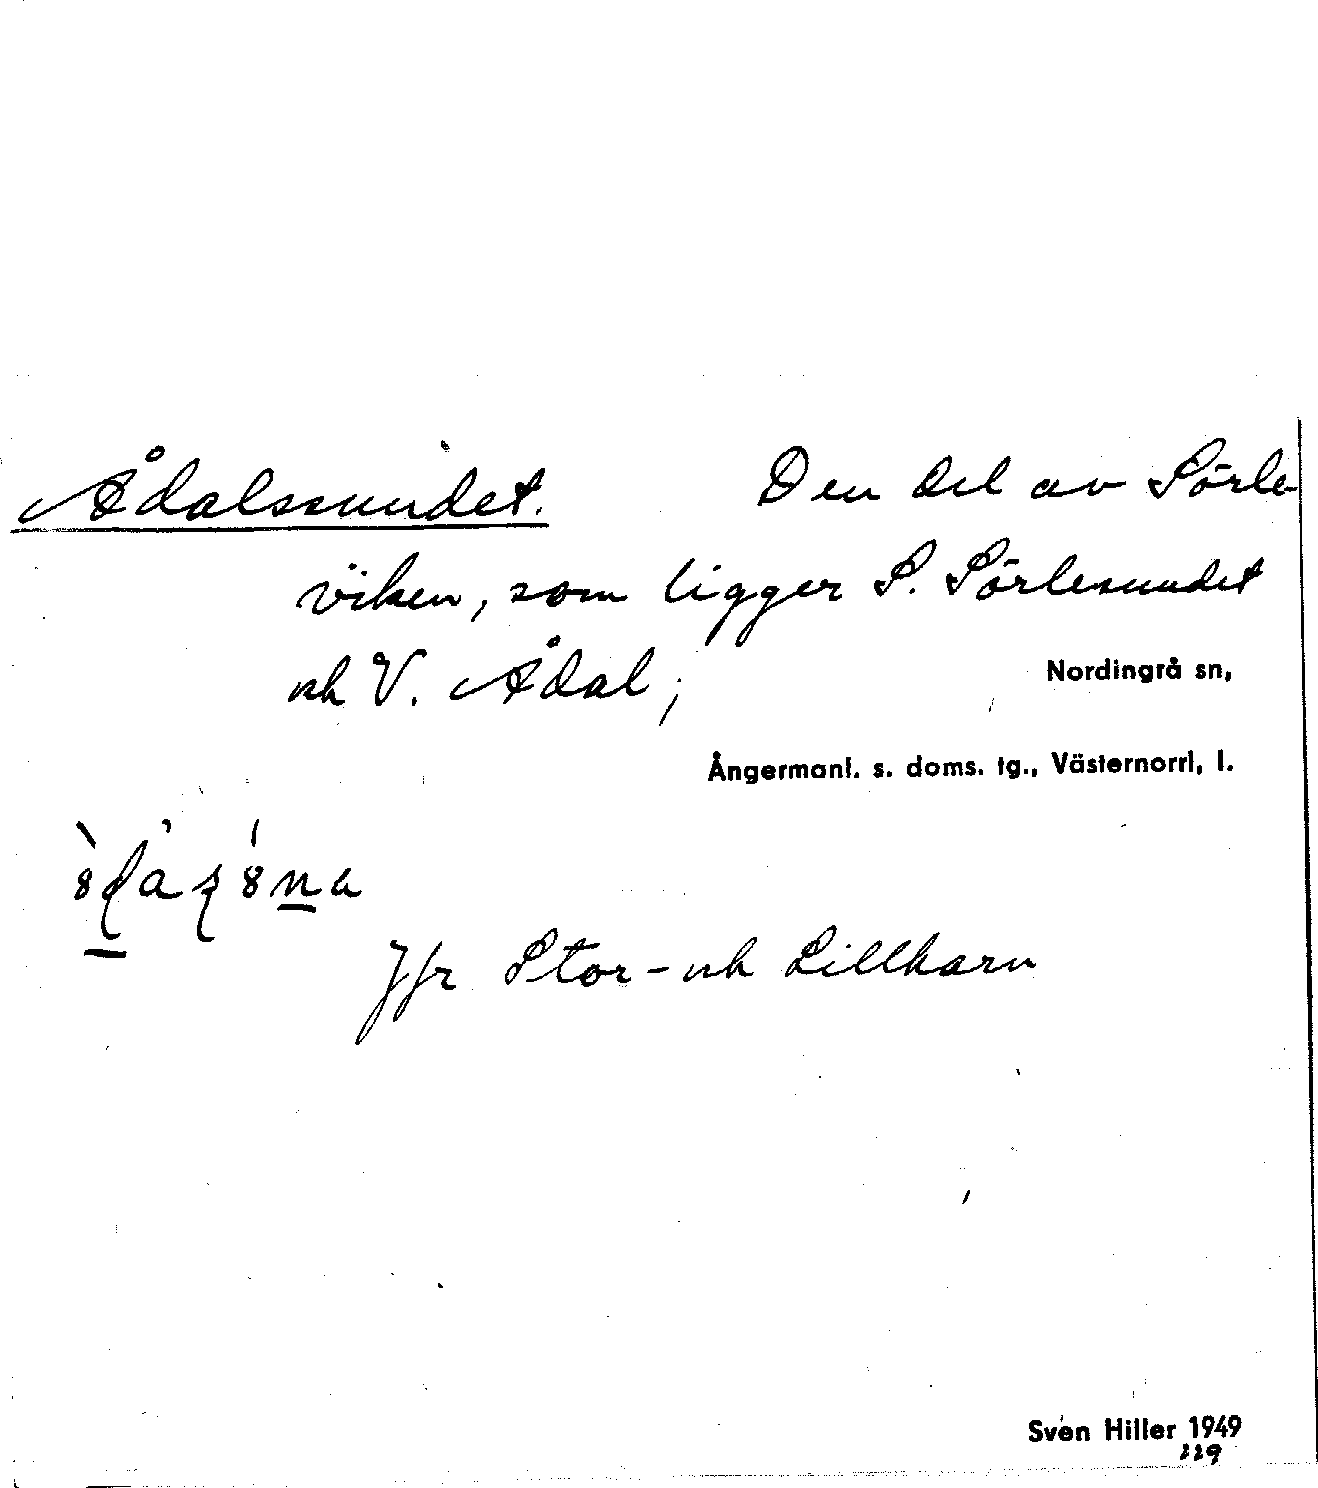 Ådalssundet. Den del av Sörle-
viken, som ligger S. Sörlesundet
och V. Ådal;
Nordingrå sn,
Ångermanl. s. doms. tg., Västernorrl, l.
Jfr Stor- och Lillharn
Sven Hiller 1949
229